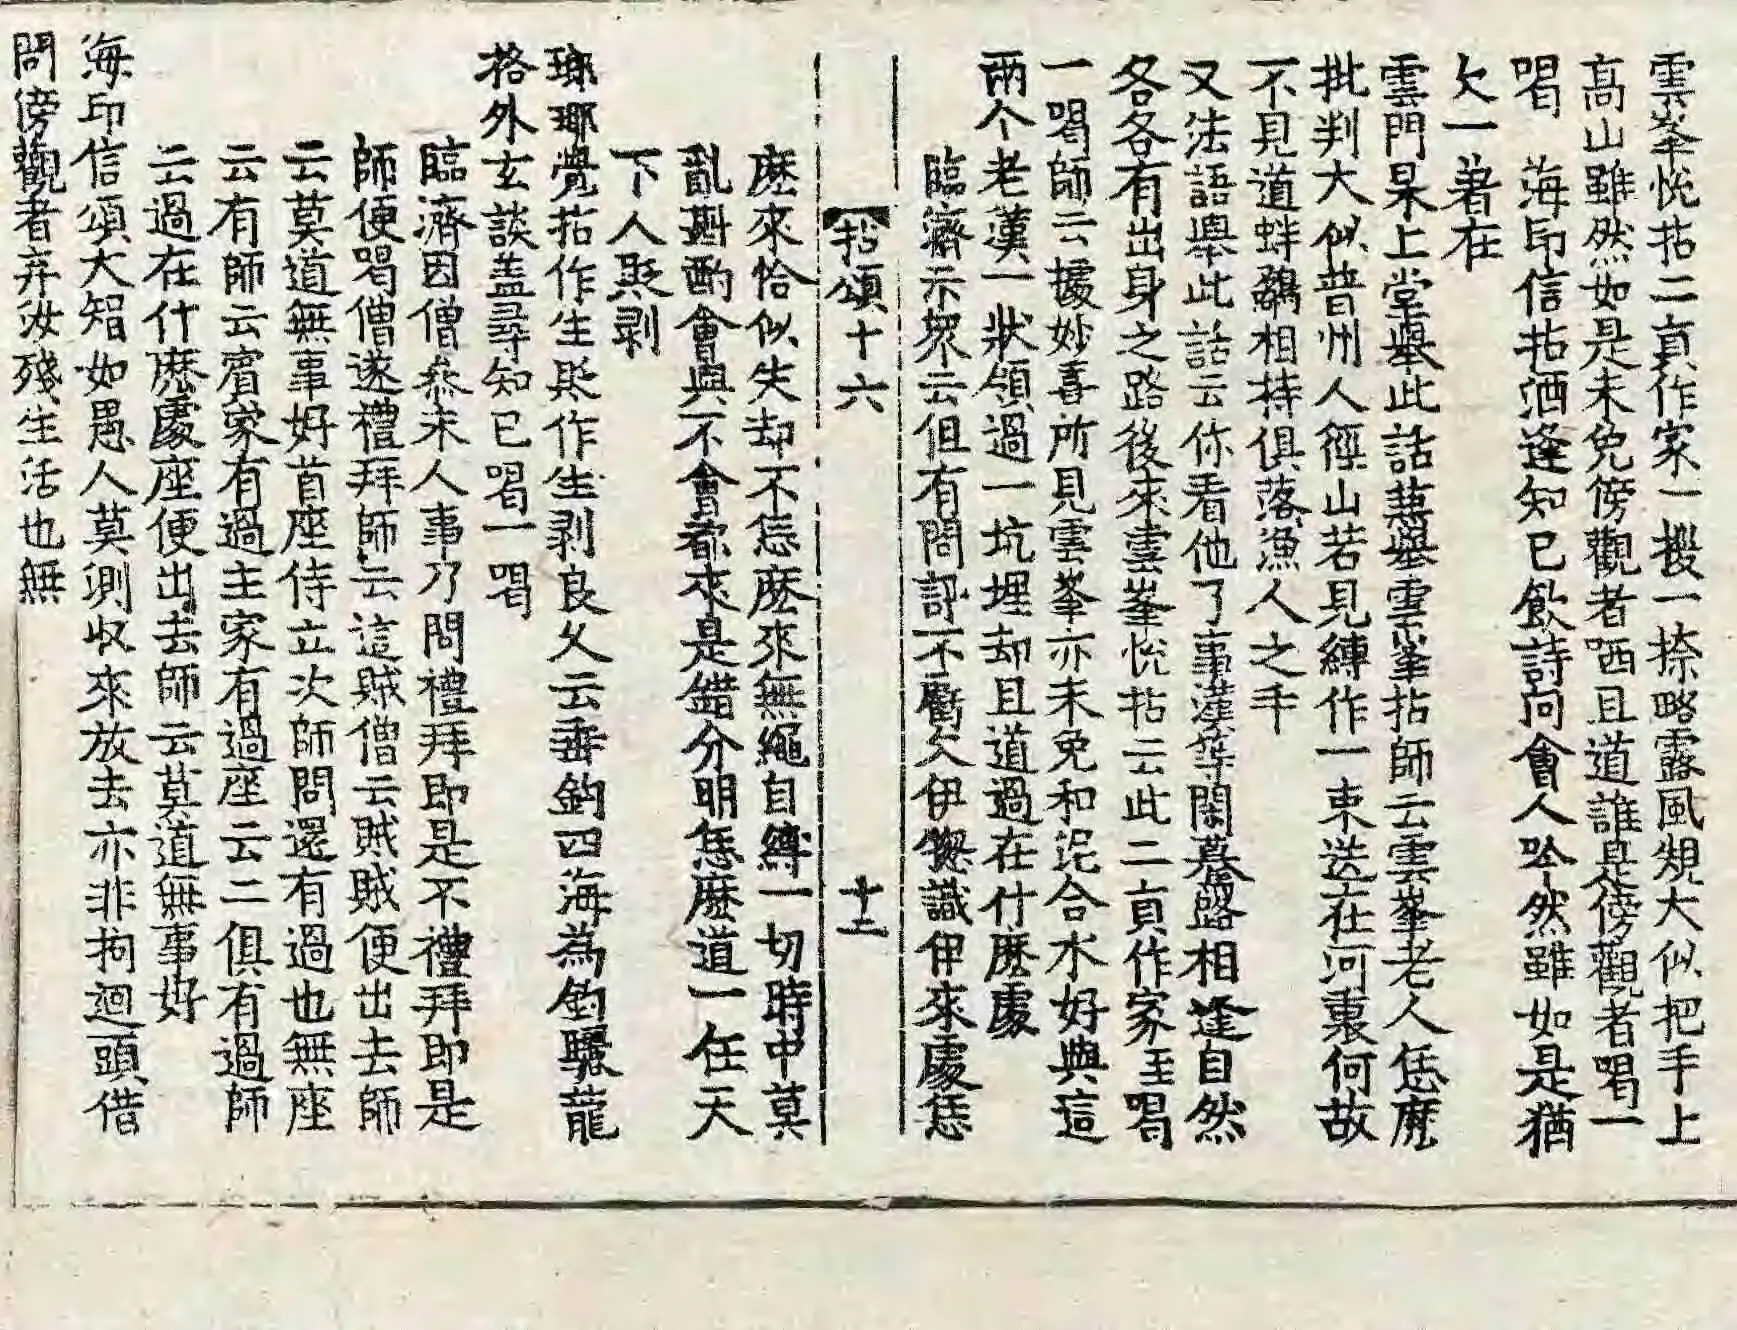 雲峯悅拈二員作家一拶一捺略露風規大似把手上
高山雖然如是未免傍觀者哂且道誰是傍觀者喝一
喝　海印信拈洒逢知己飲詩向會人吟然雖如是猶
欠一著在
雲門杲上堂舉此話兼舉雲峯拈師云雲峯老人恁麽
批判大似普州人徑山若見縛作一束送在河裏何故
不見道蚌鷸相持俱落漁人之手
又法語舉此話云你看他了事漢等閑驀路相逢自然
各各有出身之路後來雲峯悅拈云此二員作家至喝
一喝師云據妙喜所見雲峯亦未免和泥合水好與這
兩个老漢一狀領過一坑埋却且道過在什麽處
臨濟示衆云但有問訝不虧欠伊揔識伊來處恁
拈頌十六　十二
麽來恰似失却不恁麽來無繩自縛一切時中莫
亂斟酌會與不會都來是錯分明恁麽道一任天
下人貶剥
瑯瑘覺拈作生貶作生剥良久云垂鉤四海爲釣驪龍
格外玄談盖尋知己喝一喝
臨濟因僧叅未人事乃問禮拜即是不禮拜即是
師便喝僧遂禮拜師云這賊僧云賊賊便出去師
云莫道無事好首座侍立次師問還有過也無座
云有師云賓家有過主家有過座云二俱有過師
云過在什麽處座便出去師云莫道無事好
海印信頌大智如愚人莫測收來放去亦非拘迴頭借
問傍觀者弃汝殘生活也無